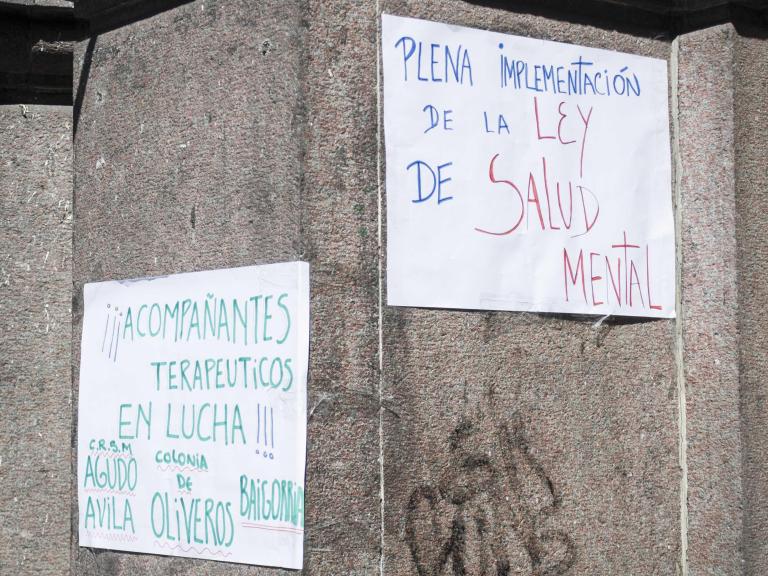 PLENA IMPLEMENTACIÓN
DE LA LEY
DE SALUD
MENTAL
¡¡¡ACOMPAÑANTES
TERAPEUTICOS
EN LUCHA!!!
C.R.S.M
AGUDO
AVILA
COLONIA
DE
OLIVEROS
BAIGORRIA